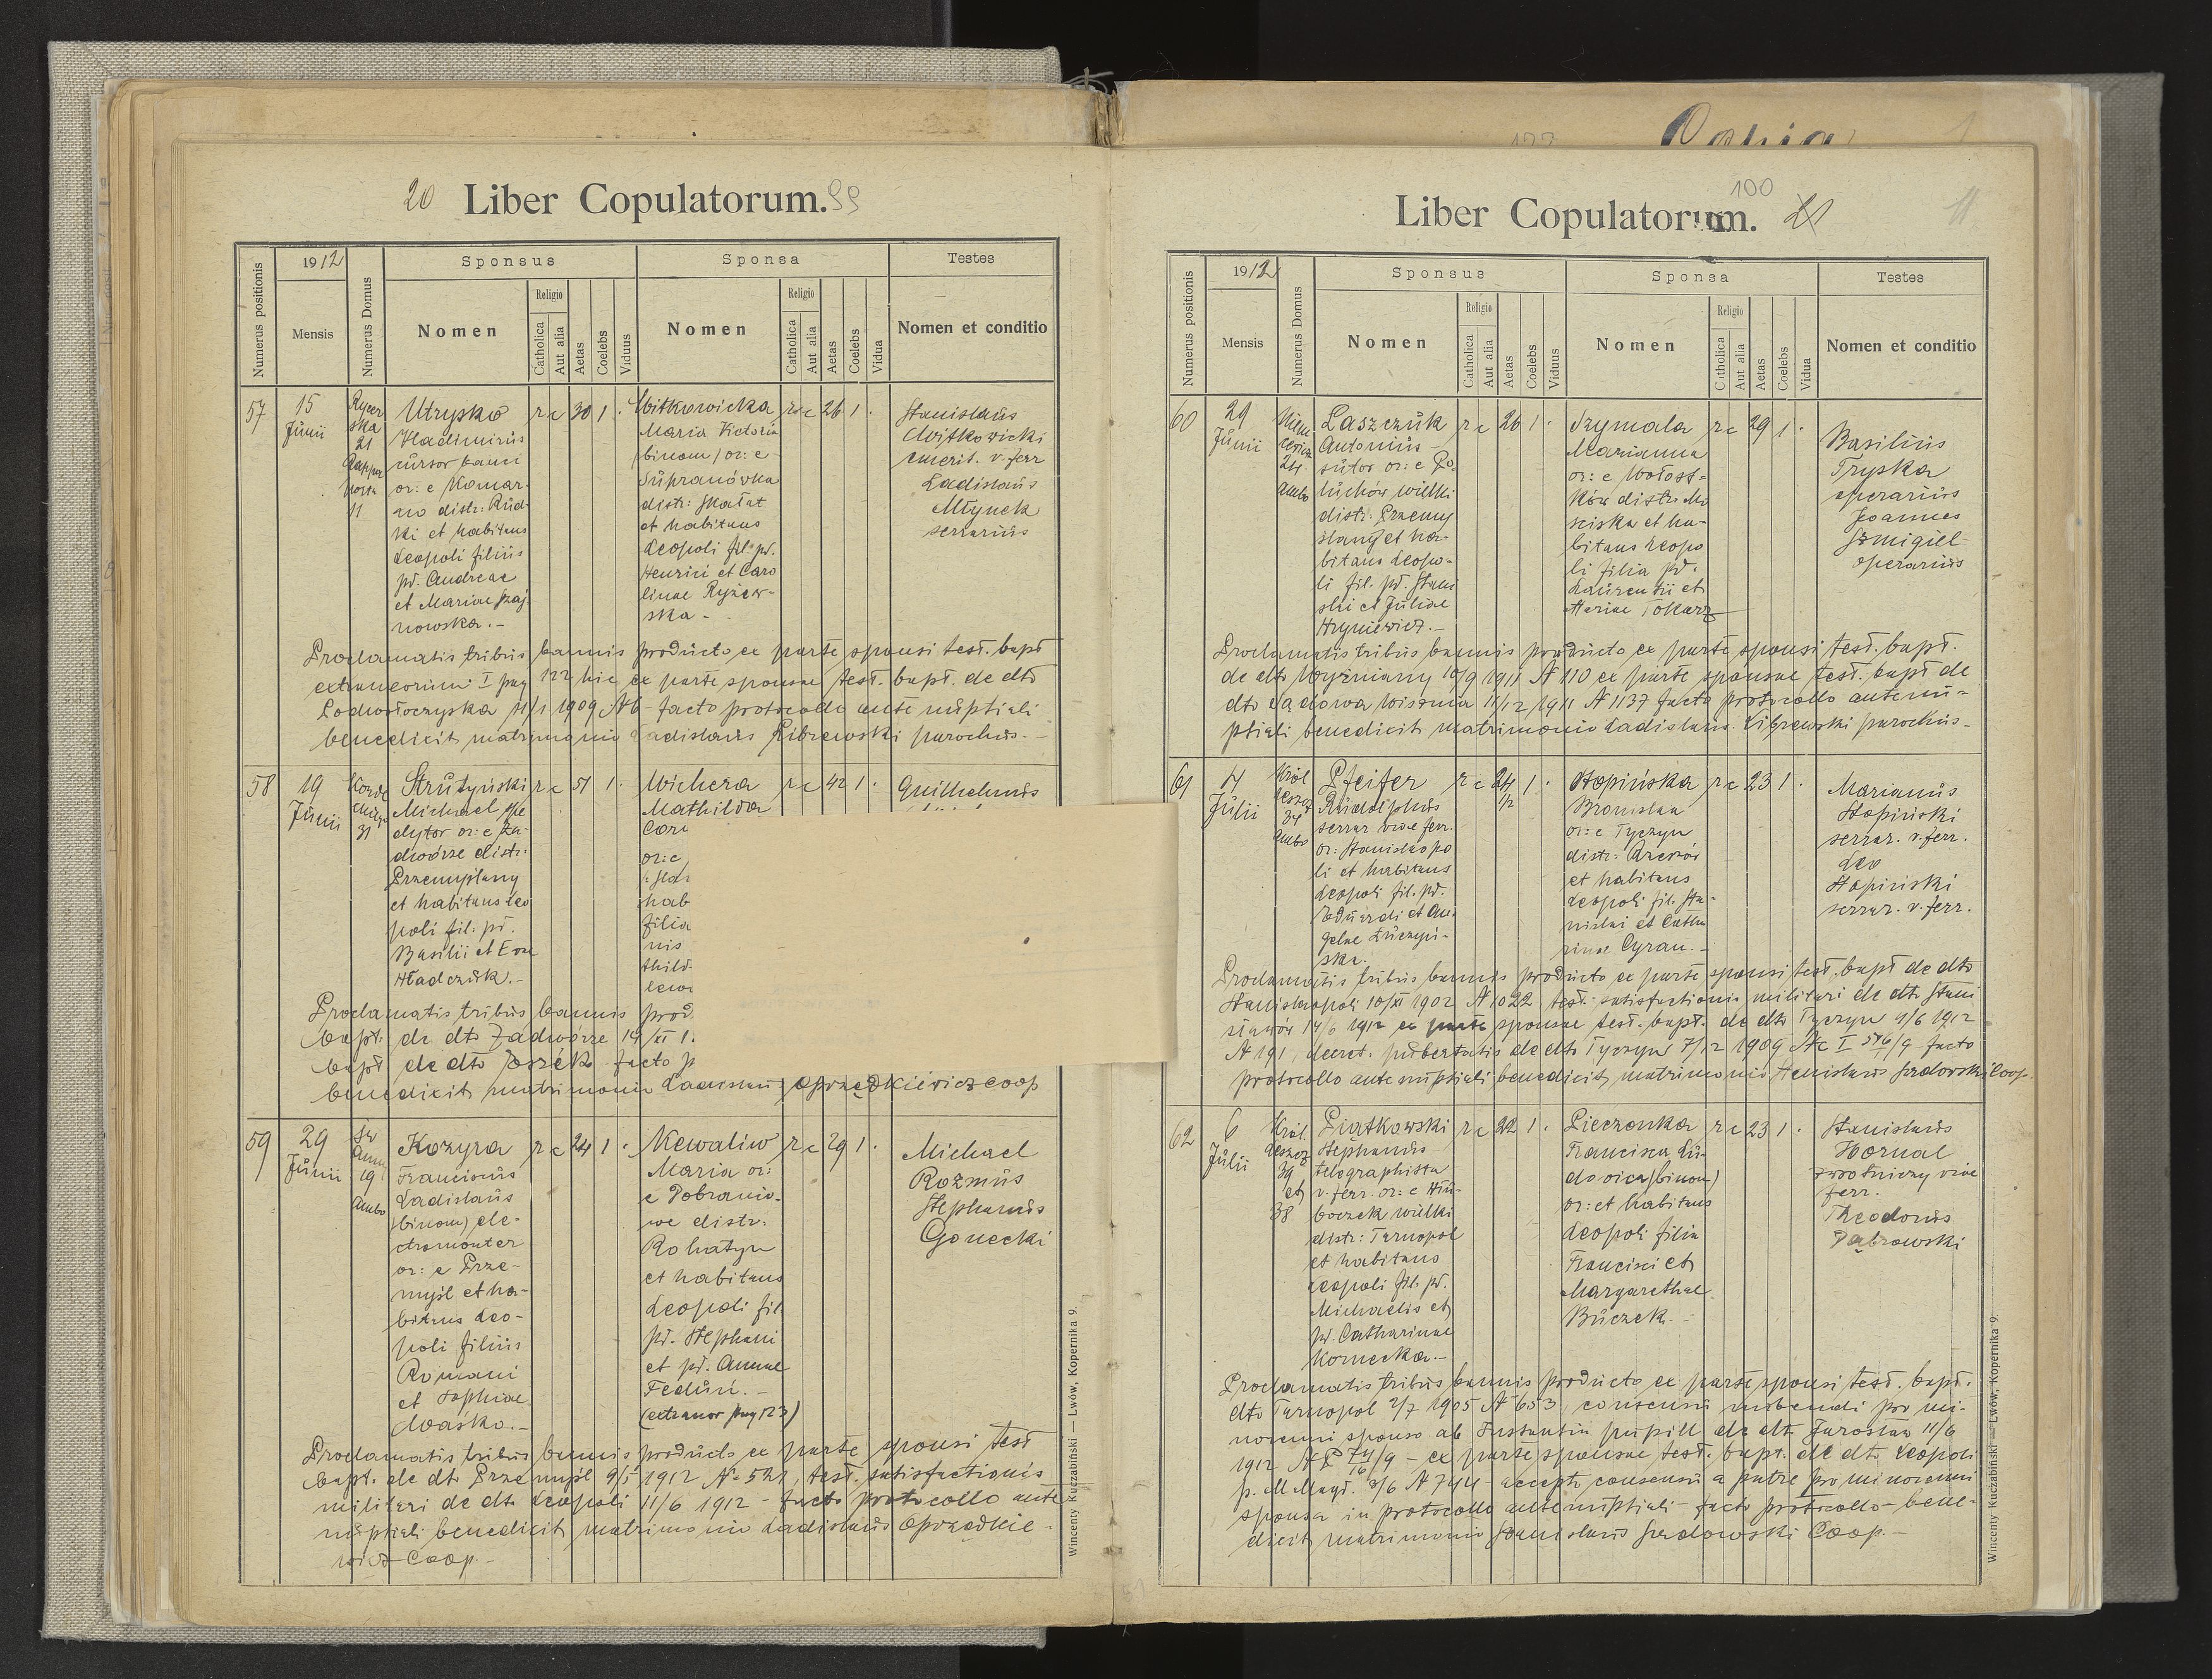 20 Liber Copulatorum. 99
Numerus positionis
1912
Mensis
Numerus Domus
Sponsus
Nomen
Religio
Catholica
Aut alia
Aetas
Coelebs
Viduus
Sponsa
Nomen
Religio
Catholica
Aut alia
Aetas
Coelebs
Vidua
Testes
Nomen et conditio
57
15
Junii
21
11
Utrysko
cursor banci
or: e Komar-
no distr: Rud-
ki et habitans
Leopoli filius
pd. Andreae
et Mariae Szaj
nowska.-
rc 30 1 .
Witkowicka
Maria Victoria
(binom) or: e
Supranówka
distr: Skałat
et habitans
Leopoli fil: pd.
Henrici et Caro
linae Ryzew-
ska -
rc 26 1 .
Stanislaus
Witkowicki
emerit. v. ferr
Ladislaus
Młynek
serrarius
Proclamatis tribus bannis producto ex parte sponsi test. bapt
extraneorum I pag 122 hic ex parte sponsae test. bapt. de dto
Podwołoczyska 11/1 1909 N 6 - facto protocollo ante nuptiali
benedicit matrimonio Ladislaus Librewski parochus.-
58
19
Junii
31
Strutyński
Michael
or: e Za-
dwórze distr:
Przemyślany
et habitans Leo
poli fil: pd.
Basilii et Evae
Hładczuk.-
rc 51 1 .
Wichera
Mathilda
or: e
hab
filia
nis
thild
lew
rc 42 1 .
Guilhelmus
Proclamatis tribus bannis prod
bapt. de dto Zadwórze 19/XI 1
bapt de dto facto p
benedicit matrimonio Ladislaus Oprzędkiewicz coop
59
29
Junii
Sw
Anny
19
Ambo
Kozyra
Franciscus
Ladislaus
(binom) ele-
ctromonter
or: e Prze-
myśl et ha-
bitans Leo-
poli filius
Romani
et Sophiae
Waśko.-
rc 24 1 .
Kewaliw
Maria or:
e Dobranio-
we distr:
Rohatyn
et habitans
Leopoli fil
pd. Stephani
et pd. Annae
Feduń.-
(extraneor pag 123)
rc 29 1 .
Michael
Rozmus
Stephanus
Gonecki
Proclamatis tribus bannis producto ex parte sponsi test
bapt. de dto Przemyśl 9/5 1912 N 521, test. satisfactionis
militari de dto Leopoli 11/6 1912 - facto protocollo ante
nuptiali benedicit matrimonio Ladislaus Oprzędkie-
wicz Coop.-
Wincenty Kuczabiński — Lwów, Kopernika 9.
100
Liber Copulatorum. 21
11
Numerus positionis
1912
Mensis
Numerus Domus
Sponsus
Nomen
Religio
Catholica
Aut alia
Aetas
Coelebs
Viduus
Sponsa
Nomen
Religio
Catholica
Aut alia
Aetas
Coelebs
Vidua
Testes
Nomen et conditio
60
29
Junii
24
Ambo
Laszczuk
Antonius
sutor or: e Po-
luchów wielki
distr: Przemy
slany et ha-
bitans Leopo-
li fil. pd. Stani
slai et Juliae
Hryniewicz.-
rc 26 1 .
Szymala
Marianna
or: e Wołost-
ków distr: Mo
sciska et ha-
bitans Leopo
li filia pd.
Laurentii et
Mariae Tokarz
rc 29 1 .
Basilius
Tryska
operarius
Joannes
Szmigiel
operarius
Proclamatis tribus bannis producto ex parte sponsi test. bapt.
de dto Wyżniany 10/9 1911 N 110 ex parte sponsae test. bapt de
dto Sądowa Wisznia 11/12 1911 N 1137 facto protocollo antenu-
ptiali benedicit matrimonio Ladislaus Librewski parochus-
61
4
Julii
Król
Leszcz
34
Ambo
Pfeifer
Rudolphus
serrar viae ferr.
or: Stanislaopo
li et habitans
Leopoli fil. pd.
Eduardi et An-
gelae Łuczyń-
ska.
rc 24 1/2 1 .
Stopińska
Bronislaa
or: e Tyczyn
distr: Rzeszów
et habitans
Leopoli fil. Sta-
nislai et Catha
rinae Cyran.-
rc 23 1 .
Marianus
Stopiński
serrar. v. ferr.
Leo
Stopiński
serrar. v. ferr.
Proclamatis tribus bannis producto ex parte sponsi test. bapt de dto
Stanislaopoli 10/XI 1902 N 1022 test: satisfactionis militari de dto Stani
sławów 14/6 1912 ex parte sponsae test. bapt. de dto Tyczyn 9/6 1912
N 191, decret. pubertatis de dto Tyczyn 7/12 1909 facto
protocollo antenuptiali benedicit matrimonio Stanislaus Sadowski Coop.
62
6
Julii
Król.
Leszcz
39
et
38
Piątkowski
Stephanus
telegraphista
v. ferr. or: e Hłu-
boczek wielki
distr: Tarnopol
et habitans
Leopoli fil. pd.
Michaelis et
pd. Catharinae
Kornecka.-
rc 22 1 .
Pieczonka
Francisca Lu-
dovica (binom)
or: et habitans
Leopoli filia
Francisci et
Margarethae
Buczek.-
rc 23 1 .
Stanislaus
Hornal
zwrotniczy viae
ferr.
Theodorus
Dąbrowski
Proclamatis tribus bannis producto ex parte sponsi test. bapt.
dto Tarnopol 2/7 1905 N 653, consensu nubendi pro mi-
norenni sponso ab Instantia pupill de dto Jarosław 11/6
1912 - ex parte sponsae test. bapt. de dto Leopoli
p. M Magd. 3/6 N 744 - accepto consensu a patre pro minorenni
sponsa in protocollo antenuptiali - facto protocollo - bene-
dicit matrimonio Stanislaus Sadowski Coop.-
Wincenty Kuczabiński — Lwów, Kopernika 9.